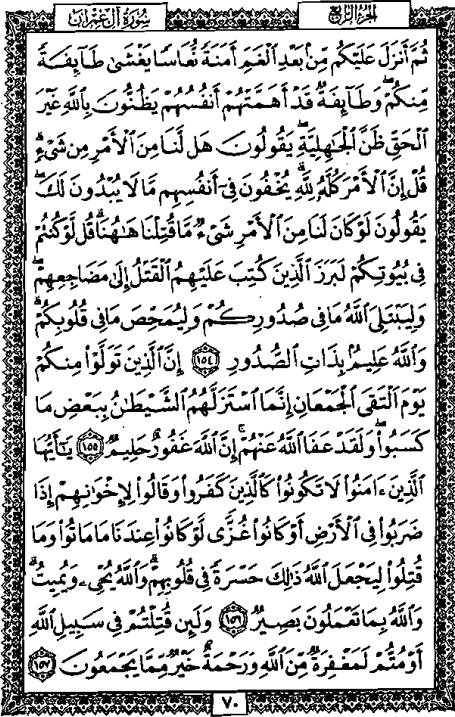 سُورَةُ آلِ عِمْرَانَ
الجُزْءُ الرَّابِعُ
ثُمَّ أَنزَلَ عَلَيْكُم مِّنۢ بَعْدِ ٱلْغَمِّ أَمَنَةً نُّعَاسًا يَغْشَىٰ طَآئِفَةً
مِّنكُمْ ۖ وَطَآئِفَةٌ قَدْ أَهَمَّتْهُمْ أَنفُسُهُمْ يَظُنُّونَ بِٱللَّهِ غَيْرَ
ٱلْحَقِّ ظَنَّ ٱلْجَـٰهِلِيَّةِ ۖ يَقُولُونَ هَل لَّنَا مِنَ ٱلْأَمْرِ مِن شَىْءٍ ۗ
قُلْ إِنَّ ٱلْأَمْرَ كُلَّهُۥ لِلَّهِ ۗ يُخْفُونَ فِىٓ أَنفُسِهِم مَّا لَا يُبْدُونَ لَكَ ۖ
يَقُولُونَ لَوْ كَانَ لَنَا مِنَ ٱلْأَمْرِ شَىْءٌ مَّا قُتِلْنَا هَـٰهُنَا ۗ قُل لَّوْ كُنتُمْ
فِى بُيُوتِكُمْ لَبَرَزَ ٱلَّذِينَ كُتِبَ عَلَيْهِمُ ٱلْقَتْلُ إِلَىٰ مَضَاجِعِهِمْ ۖ
وَلِيَبْتَلِىَ ٱللَّهُ مَا فِى صُدُورِكُمْ وَلِيُمَحِّصَ مَا فِى قُلُوبِكُمْ ۗ
وَٱللَّهُ عَلِيمٌۢ بِذَاتِ ٱلصُّدُورِ ١٥٤ إِنَّ ٱلَّذِينَ تَوَلَّوْا۟ مِنكُمْ
يَوْمَ ٱلْتَقَى ٱلْجَمْعَانِ إِنَّمَا ٱسْتَزَلَّهُمُ ٱلشَّيْطَـٰنُ بِبَعْضِ مَا
كَسَبُوا۟ ۖ وَلَقَدْ عَفَا ٱللَّهُ عَنْهُمْ ۗ إِنَّ ٱللَّهَ غَفُورٌ حَلِيمٌ ١٥٥ يَـٰٓأَيُّهَا
ٱلَّذِينَ ءَامَنُوا۟ لَا تَكُونُوا۟ كَٱلَّذِينَ كَفَرُوا۟ وَقَالُوا۟ لِإِخْوَٰنِهِمْ إِذَا
ضَرَبُوا۟ فِى ٱلْأَرْضِ أَوْ كَانُوا۟ غُزًّى لَّوْ كَانُوا۟ عِندَنَا مَا مَاتُوا۟ وَمَا
قُتِلُوا۟ لِيَجْعَلَ ٱللَّهُ ذَٰلِكَ حَسْرَةً فِى قُلُوبِهِمْ ۗ وَٱللَّهُ يُحْىِۦ وَيُمِيتُ ۗ
وَٱللَّهُ بِمَا تَعْمَلُونَ بَصِيرٌ ١٥٦ وَلَئِن قُتِلْتُمْ فِى سَبِيلِ ٱللَّهِ
أَوْ مُتُّمْ لَمَغْفِرَةٌ مِّنَ ٱللَّهِ وَرَحْمَةٌ خَيْرٌ مِّمَّا يَجْمَعُونَ ١٥٧
٧٠